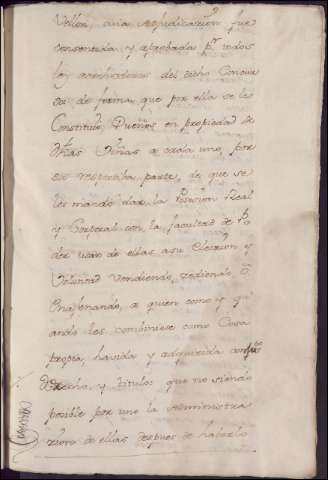 Vellon, cuia adjudicacion fue
consentida, y aprobada pr. todos
los acrehedores del dicho Concur
so de forma, que por ella se les
Constituió Dueños en propiedad de
dhas Viñas a cada uno, por
su respectiva parte, de que se
les mandó dar la Posesion Real
y Corporal con la facultad de Po
der usar de ellas a su Eleccion, y
Voluntad Vendiendo, zediendo, ó
Enagenando, a quien como y qu
ando les combiniese como Cosa
propia, havida y adquirida con justo
derecho, y titulos que no siendo
posible por uno la Administra
zion de ellas despues de haberlo